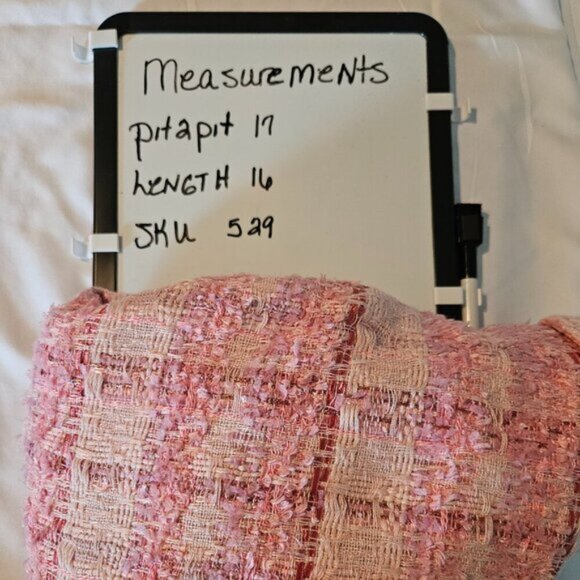 Measurements
pit2pit 17
LENGTH 16
SKU 529